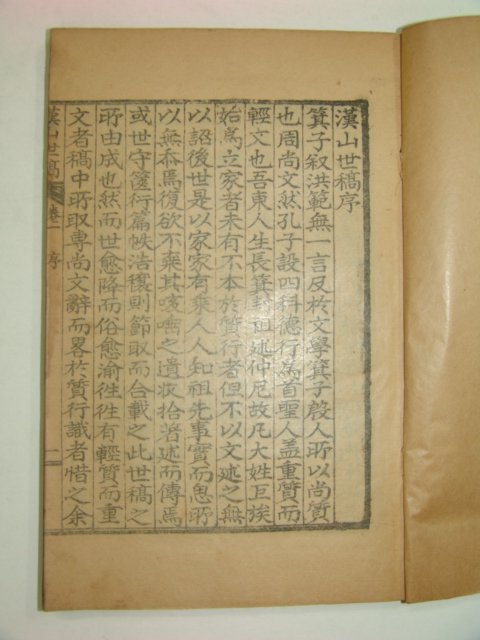 漢山世稿序
箕子叙洪範無一言及於文學箕子殷人所以尚質
也周尚文然孔子設四科德行為首聖人盖重質而
輕文也吾東人生長箕封祖述仲尼故凡大姓巨族
始為立家者未有不本於質行者但不以文述之無
以詔後世是以家家有乘人人知祖先事實而思所
以無忝焉復欲不棄其咳唾之遺收拾著述而傳焉
或世守篋衍篇帙浩穰則節取而合載之此世稿之
所由成也然而世愈降而俗愈渝徃徃有輕質而重
文者稿中所取専尚文辭而畧於質行識者惜之余
漢山世稿 卷一 序 一